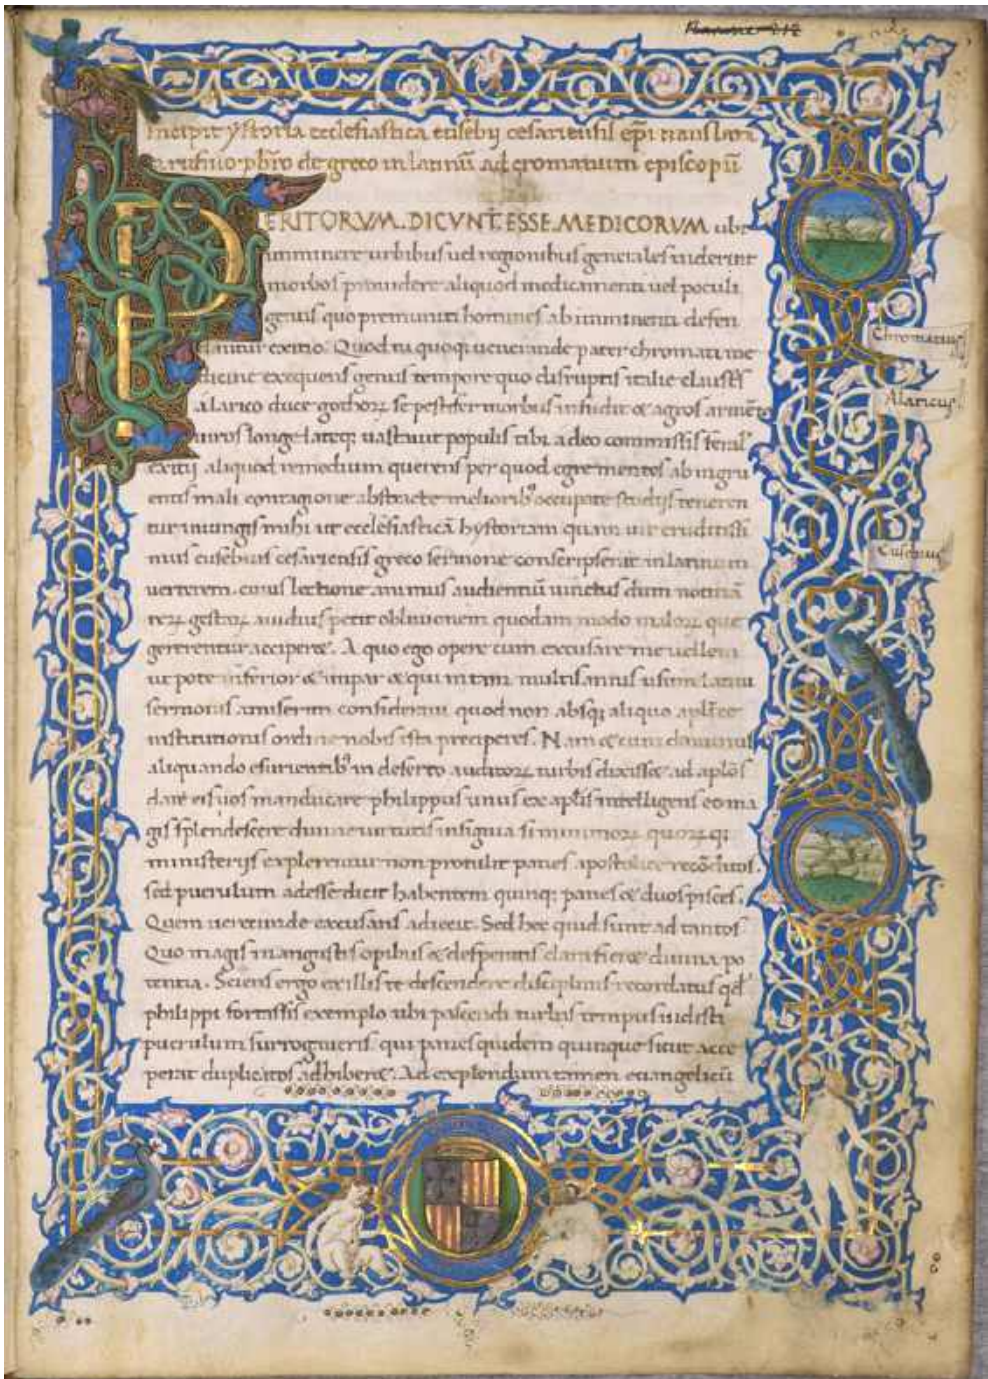 Harone 212
Incipit ystoria ecclesiastica eusebij cesariensis epi translata
a rufino pbro de greco in latinu ad cromatium episcopu
PERITORVM.DICVNT.ESSE.MEDICORVM ubi
imminere urbibus uel regionibus generales uiderint
morbos prouidere aliquod medicamenti uel poculi
genus quo premuniti homines ab imminenti defen
dantur exitio. Quod tu quoq; uenerande pater chromati me
dicine exequens genus tempore quo disruptis italie claustris
alarico duce gothoꝝ se pestifer morbus infudit & agros armeta
uiros longe lateq; uastauit populis tibi a deo commissis feral
exitij aliquod remedium querens per quod egre mentes ab ingru
entis mali contagione abstracte meliorib9 occupate studijs teneren
tur iniungis mihi ut ecclesiasticā hystoriam quam uir eruditissi
mus eusebius cesariensis greco sermone conscripserat in latinum
uerterem. cuius lectione animus audientiū uinctus dum notitiā
reꝝ gestaꝝ auidius petit obliuionem quodam modo maloꝝ que
gererentur acciperet. A quo ego opere cum excusare me uellem
ut pote inferior & impar & qui in tam multis annis usum latini
sermonis amiserim consideraui quod non absq; aliquo aplice
institutionis ordine nobis ista preciperes. Nam & cum dominus
aliquando esurientib9 in deserto auditoꝝ turbis dixisset ad aplos
date eis uos manducare philippus unus ex aplis intelligens eo ma
gis splendescere diuine uirtutis insignia si minimoꝝ quoꝝ q;
ministerijs explerentur non protulit panes apostolice recōditos.
sed puerulum adesse dicit habentem quinq; panes & duos pisces.
Quem uerecunde excusans adiecit. Sed hec quid sunt ad tantos
Quo magis in angustis opibus & desperatis clara fieret diuina po
tentia. Sciens ergo ex illis te descendere disciplinis recordatus qd
philippi fortassis exemplo ubi pascendi turbas tempus uidisti
puerulum surrogaueris. qui panes quidem quinque sicut acce
perat duplicatos adhiberet. Ad explendum tamen euangelicū
Chromatius
Alaricus.
Eusebius